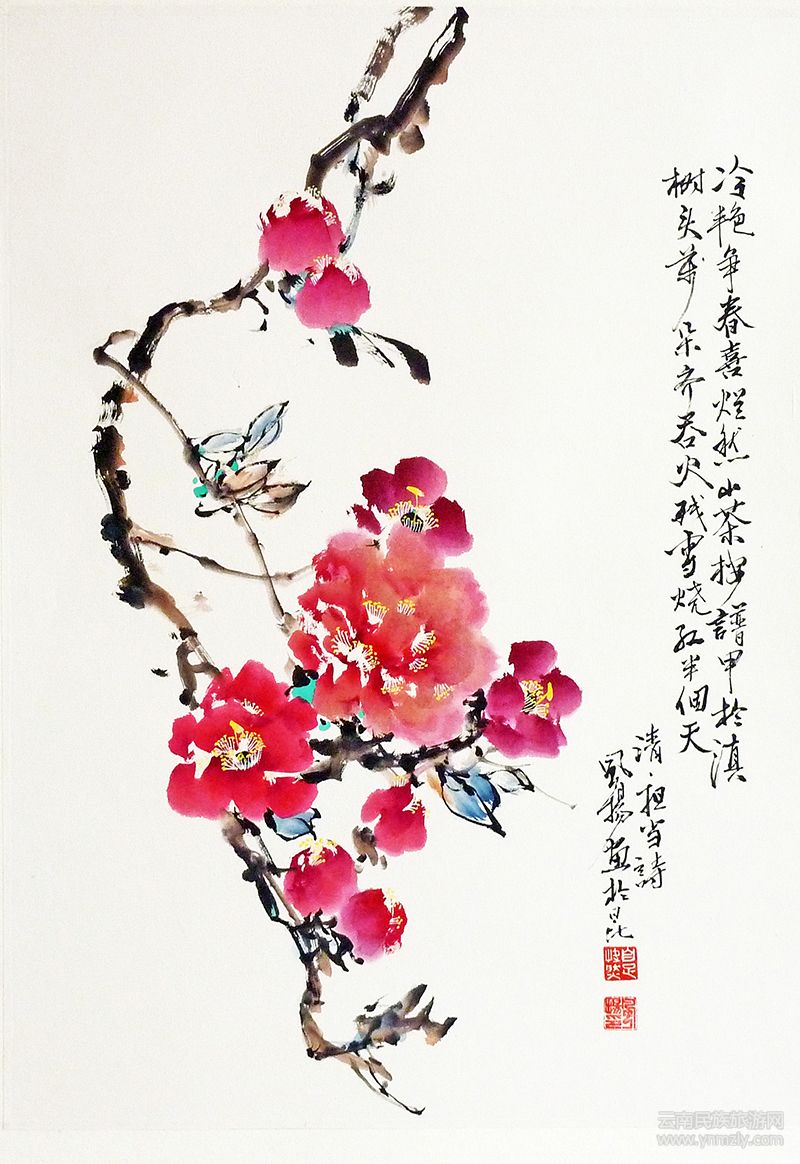 冷艳争春喜烂然山茶按譜甲於滇
树头萬朵齐吞火残雪烧红半個天
清·担当詩
風揚畫於昆
云南民族旅游网
www.ynmzly.com